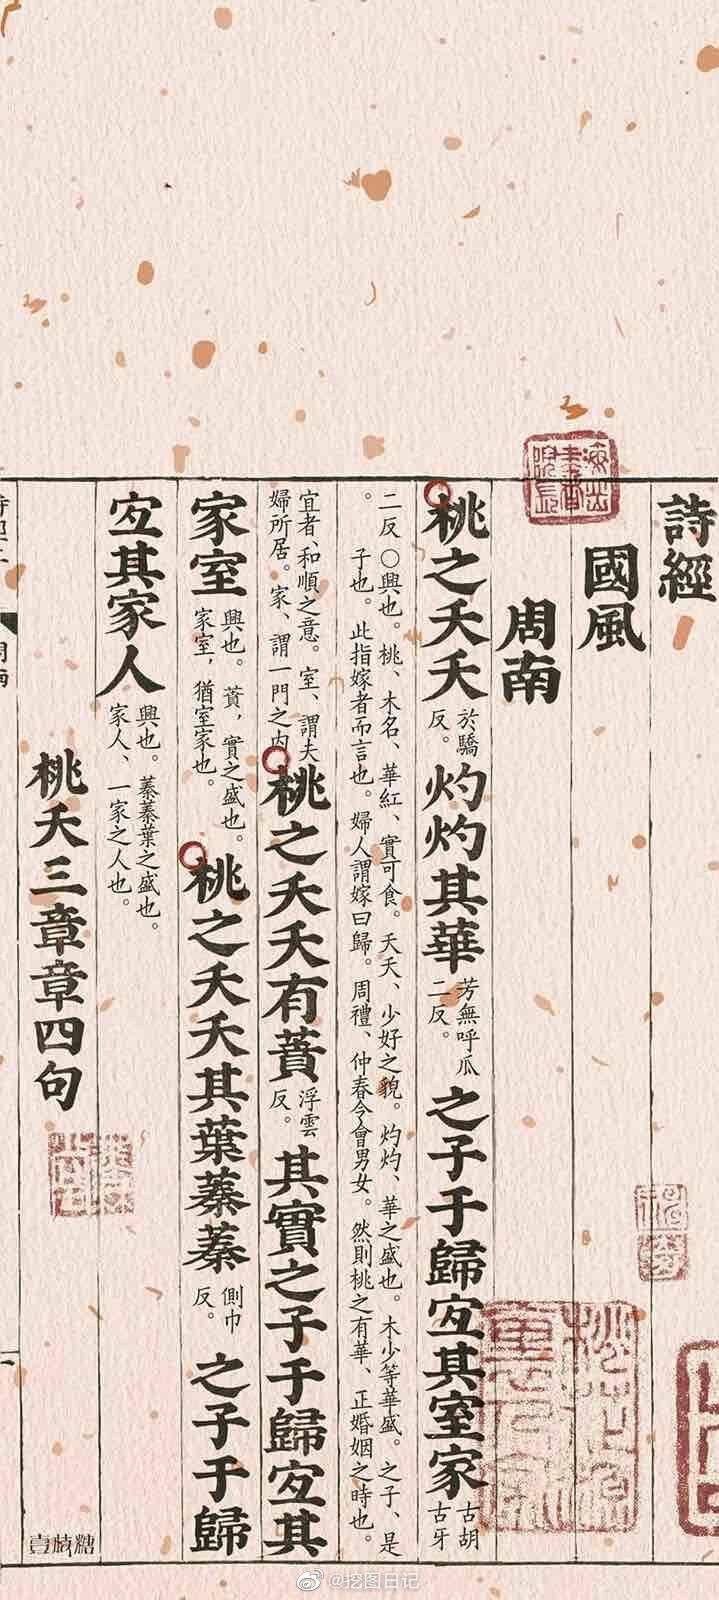 詩經
國風
周南
桃之夭夭於驕反。灼灼其華芳無呼瓜二反。之子于歸宐其室家古胡古牙
二反○興也。桃、木名、華紅、實可食。夭夭、少好之貌。灼灼、華之盛也。木少等華盛。之子、是
子也。此指嫁者而言也。婦人謂嫁曰歸。周禮、仲春令會男女。然則桃之有華、正婚姻之時也。
宜者、和順之意。室、謂夫婦所居。家、謂一門之内。桃之夭夭有蕡浮雲反。其實之子于歸宐其
家室興也。蕡，實之盛也。家室，猶室家也。桃之夭夭其葉蓁蓁側巾反。之子于歸
宐其家人興也。蓁蓁葉之盛也。家人、一家之人也。
桃夭三章章四句
壹枝糖
@挖图日记